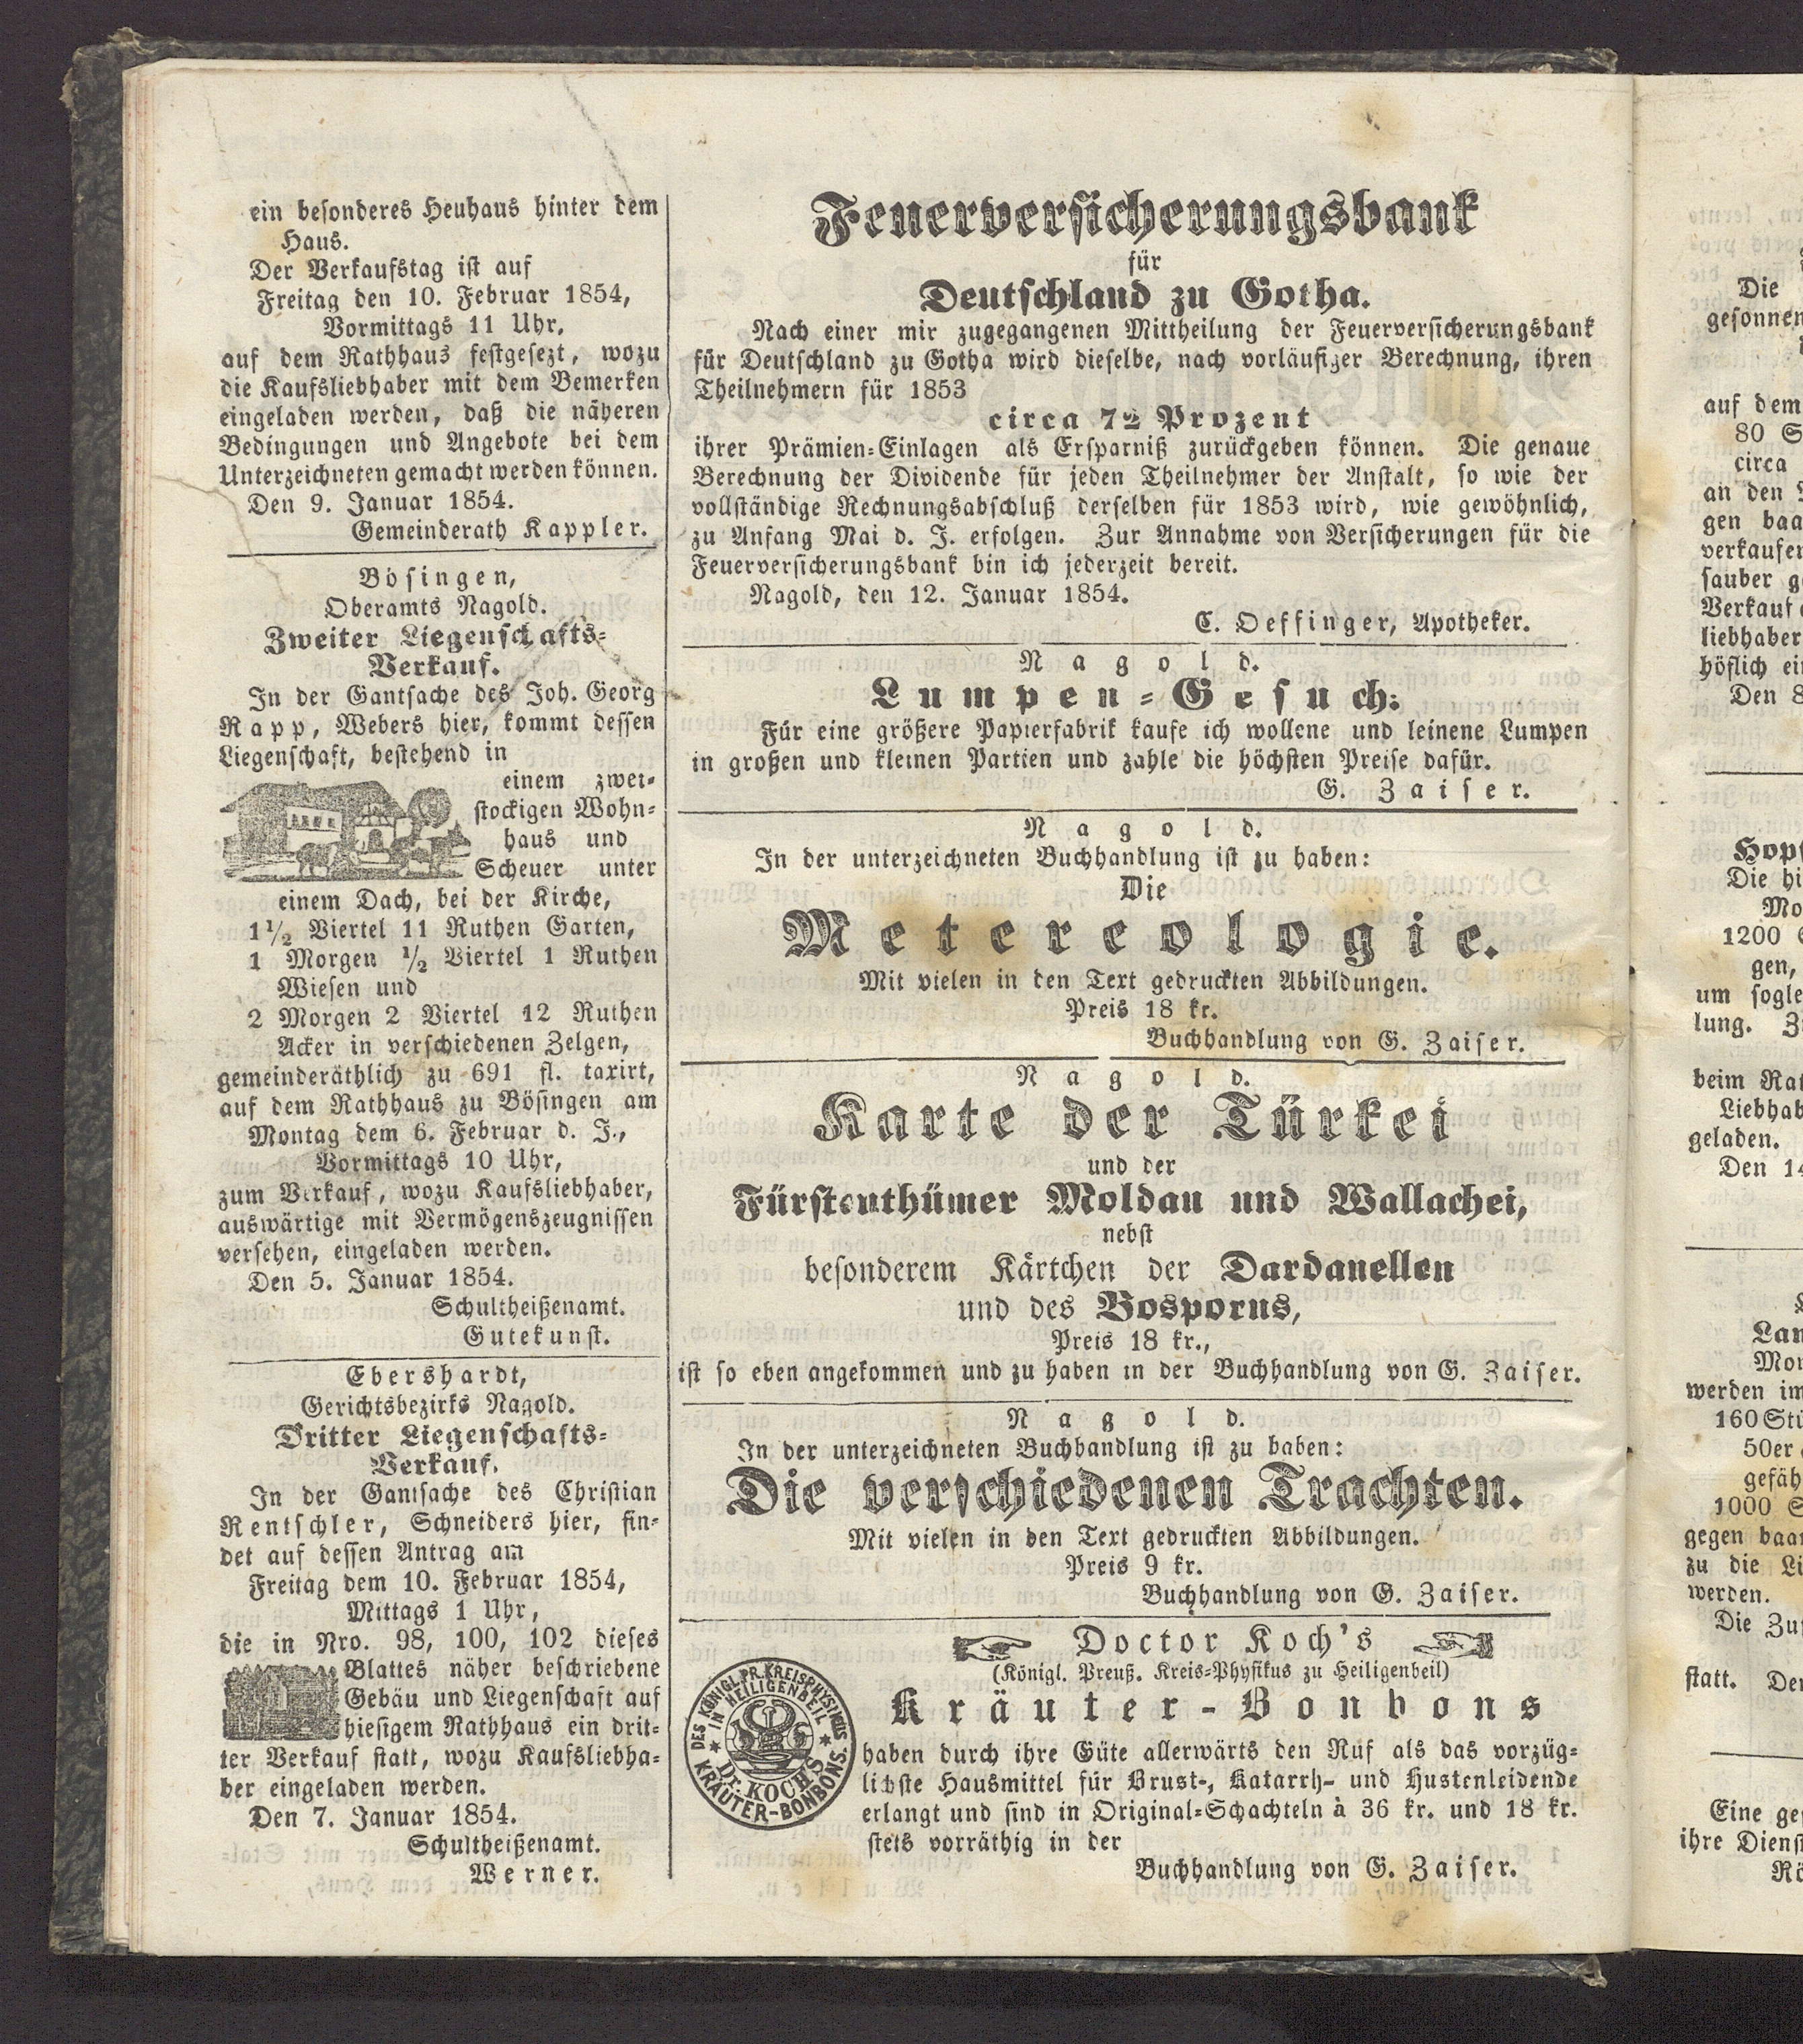 ein besonderes Heuhaus hinter dem
Haus.
Der Verkaufstag ist auf
Freitag den 10. Februar 1854,
Vormittags 11 Uhr,
auf dem Rathhaus festgesezt, wozu
die Kaufsliebhaber mit dem Bemerken
eingeladen werden, daß die näheren
Bedingungen und Angebote bei dem
Unterzeichneten gemacht werden können.
Den 9. Januar 1854.
Gemeinderath Kappler.
Bösingen,
Oberamts Nagold.
Zweiter Liegenschafts-
Verkauf.
In der Gantsache des Joh. Georg
Rapp, Webers hier, kommt dessen
Liegenschaft, bestehend in
einem zwei-
stockigen Wohn-
haus und
Scheuer unter
einem Dach, bei der Kirche,
1 1/2 Viertel 11 Ruthen Garten,
1 Morgen 1/2 Viertel 1 Ruthen
Wiesen und
2 Morgen 2 Viertel 12 Ruthen
Acker in verschiedenen Zelgen,
gemeinderäthlich zu 691 fl. taxirt,
auf dem Rathhaus zu Bösingen am
Montag dem 6. Februar d. J.,
Vormittags 10 Uhr,
zum Verkauf, wozu Kaufsliebhaber,
auswärtige mit Vermögenszeugnissen
versehen, eingeladen werden.
Den 5. Januar 1854.
Schultheißenamt.
Gutekunst.
Ebershardt,
Gerichtsbezirks Nagold.
Dritter Liegenschafts-
Verkauf.
In der Gantsache des Christian
Rentschler, Schneiders hier, fin-
det auf dessen Antrag am
Freitag dem 10. Februar 1854,
Mittags 1 Uhr,
die in Nro. 98, 100, 102 dieses
Blattes näher beschriebene
Gebäu und Liegenschaft auf
hiesigem Rathhaus ein drit-
ter Verkauf statt, wozu Kaufsliebha-
ber eingeladen werden.
Den 7. Januar 1854.
Schultheißenamt.
Werner.
Feuerversicherungsbank
für
Deutschland zu Gotha.
Nach einer mir zugegangenen Mittheilung der Feuerversicherungsbank
für Deutschland zu Gotha wird dieselbe, nach vorläufiger Berechnung, ihren
Theilnehmern für 1853
circa 72 Prozent
ihrer Prämien-Einlagen als Ersparniß zurückgeben können. Die genaue
Berechnung der Dividende für jeden Theilnehmer der Anstalt, so wie der
vollständige Rechnungsabschluß derselben für 1853 wird, wie gewöhnlich,
zu Anfang Mai d. J. erfolgen. Zur Annahme von Versicherungen für die
Feuerversicherungsbank bin ich jederzeit bereit.
Nagold, den 12. Januar 1854.
C. Oeffinger, Apotheker.
Nagold.
Lumpen-Gesuch:
Für eine größere Papierfabrik kaufe ich wollene und leinene Lumpen
in großen und kleinen Partien und zahle die höchsten Preise dafür.
G. Zaiser.
Nagold.
In der unterzeichneten Buchhandlung ist zu haben:
Die
Metereologie.
Mit vielen in den Text gedruckten Abbildungen.
Preis 18 kr.
Buchhandlung von G. Zaiser.
Nagold.
Karte der Türkei
und der
Fürstenthümer Moldau und Wallachei,
nebst
besonderem Kärtchen der Dardanellen
und des Bosporus,
Preis 18 kr.,
ist so eben angekommen und zu haben in der Buchhandlung von G. Zaiser.
Nagold.
In der unterzeichneten Buchhandlung ist zu haben:
Die verschiedenen Trachten.
Mit vielen in den Text gedruckten Abbildungen.
Preis 9 kr.
Buchhandlung von G. Zaiser.
Doctor Koch's
(Königl. Preuß. Kreis-Physikus zu Heiligenbeil)
Kräuter-Bonbons
DES KÖNIGL. PR. KREISPHYSICUS
IN HEILIGENBEIL
Dr. KOCHS
KRÄUTER-BONBONS.
haben durch ihre Güte allerwärts den Ruf als das vorzüg-
lichste Hausmittel für Brust-, Katarrh- und Hustenleidende
erlangt und sind in Original-Schachteln à 36 kr. und 18 kr.
stets vorräthig in der
Buchhandlung von G. Zaiser.
Die
gesonnen
auf dem
80
circa
an den
gen baa
verkaufen
sauber
Verkauf
liebhaber
höflich
Den 8
Die
1200
gen,
um
lung.
beim
geladen.
Den 14
werden im
160 Stü
50er
gefäh
1000
gegen baar
zu die
werden.
Die
statt.
Eine
ihre